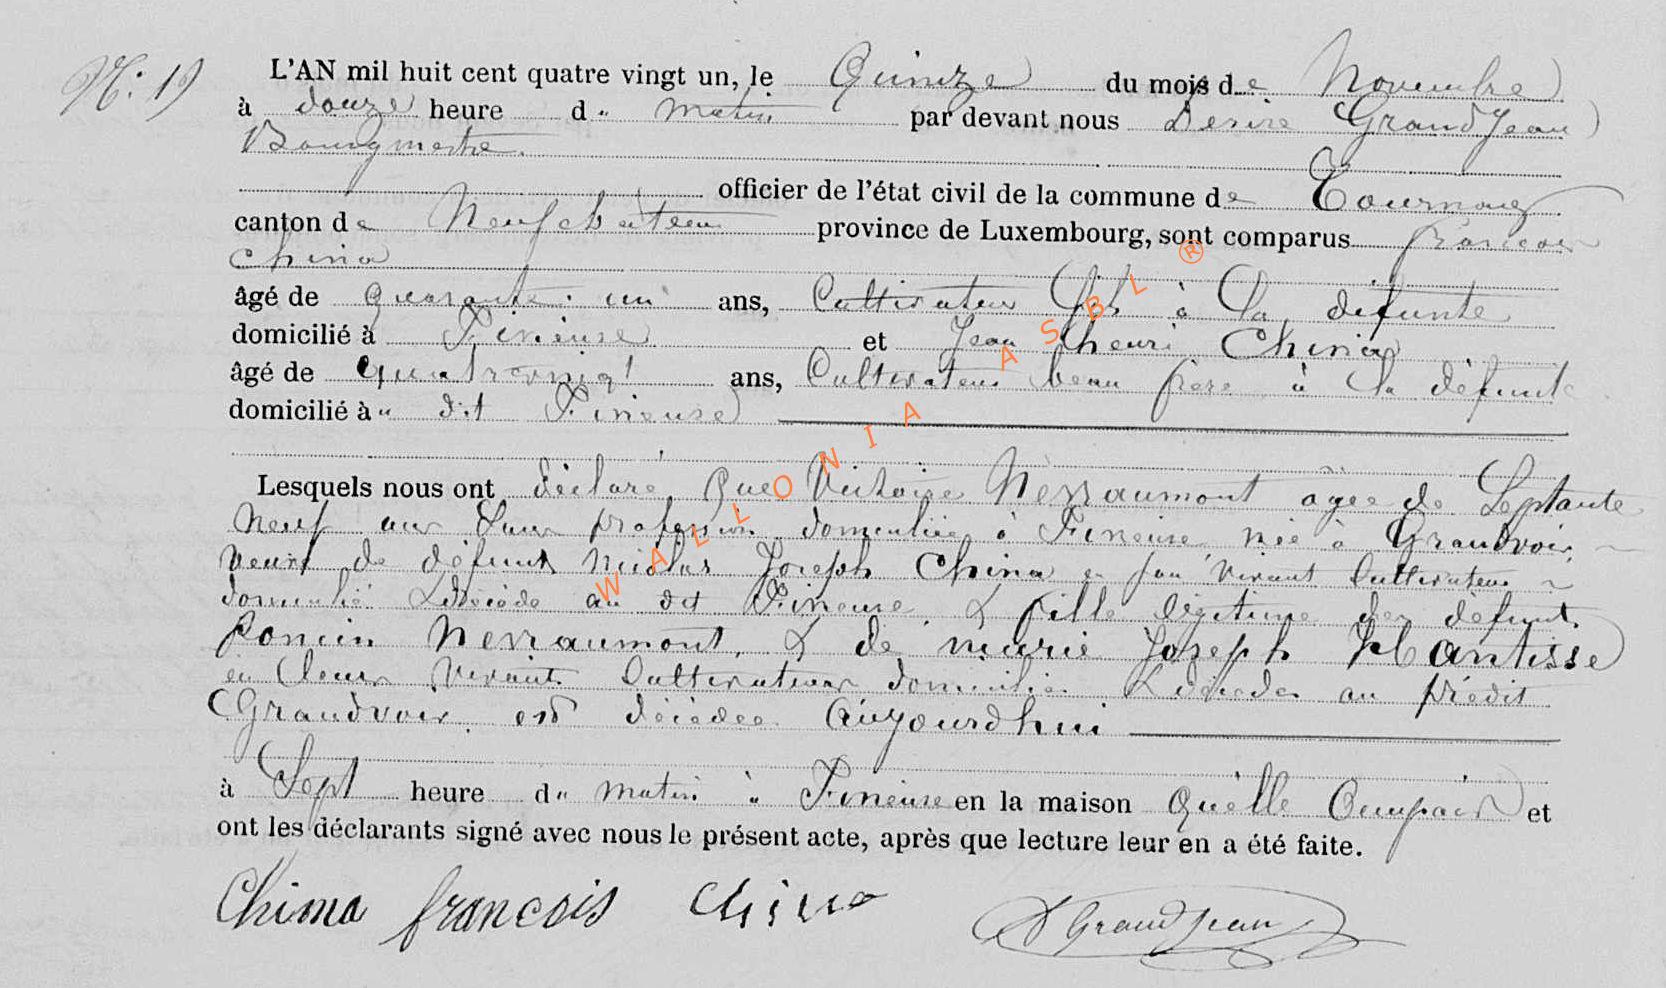 N: 19
L'AN mil huit cent quatre vingt un, le Quinze du mois de Novembre
à douze heure d" matin par devant nous Désiré GrandJean
Bourgmestre
officier de l'état civil de la commune de Tournay
canton de Neufchâteau province de Luxembourg, sont comparus francois
China
âgé de quarante un ans, Cultivateur fils à la défunte
domicilié à Fineuse et Jean henri China
âgé de quatrevingt ans, Cultivateur beau frère à la défunte
domicilié à " dit Fineuse
Lesquels nous ont déclaré Que Victoire Nevraumont agée de Septante
Neuf ans Sans profession domiciliée à Fineuse née à Grandvoir
veuve de défunt Nicolas Joseph China en son vivant Cultivateur
domicilié & décédé au dit Fineuse & fille légitime des défunt
Poncin Nevraumont & de marie Joseph Hantisse
en leur vivant Cultivateur domiciliés & décédés au prédit
Grandvoir est décédée Aujourdhui
à Sept heure d" matin à Fineuse en la maison Quelle Occupait et
ont les déclarants signé avec nous le présent acte, après que lecture leur en a été faite.
China francois China D GrandJean
WALLONIA ASBL ®